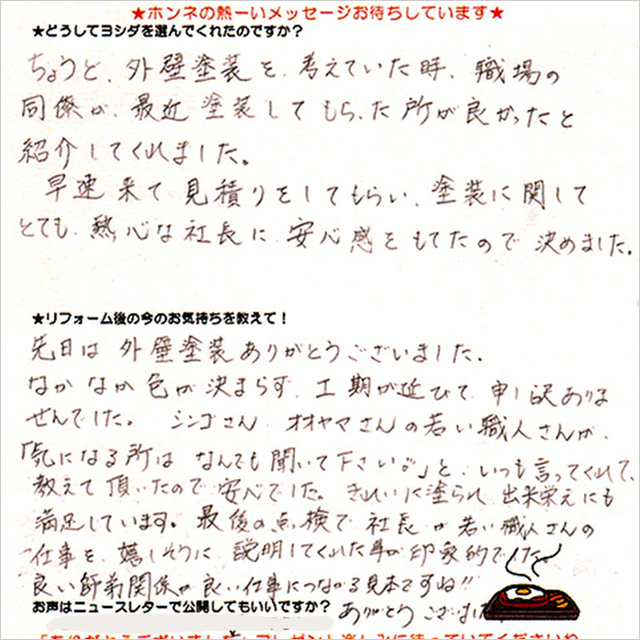 ★ホンネの熱ーいメッセージお待ちしています★
★どうしてヨシダを選んでくれたのですか？
ちょうど、外壁塗装を、考えていた時、職場の
同僚が、最近塗装してもらった所が良かったと
紹介してくれました。
早速来て見積りをしてもらい、塗装に関して
とても、熱心な社長に、安心感をもてたので決めました。
★リフォーム後の今のお気持ちを教えて！
先日は外壁塗装ありがとうございました。
なかなか色が決まらず、工期が延びて、申し訳ありま
せんでした。シンゴさん、オオヤマさんの若い職人さんが、
「気になる所はなんでも聞いて下さいね」と、いつも言ってくれて、
教えて頂いたので安心でした。きれいに塗られ、出来栄えにも
満足しています。最後の点検で社長が若い職人さんの
仕事を、嬉しそうに説明してくれた事が印象的でした
良い師弟関係が良い仕事につながる見本ですね!!
お声はニュースレターで公開してもいいですか？ ありがとうございま